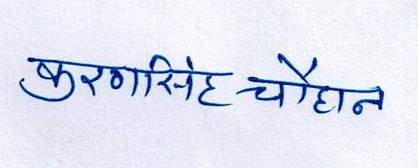 कुरणसिंह चौहान